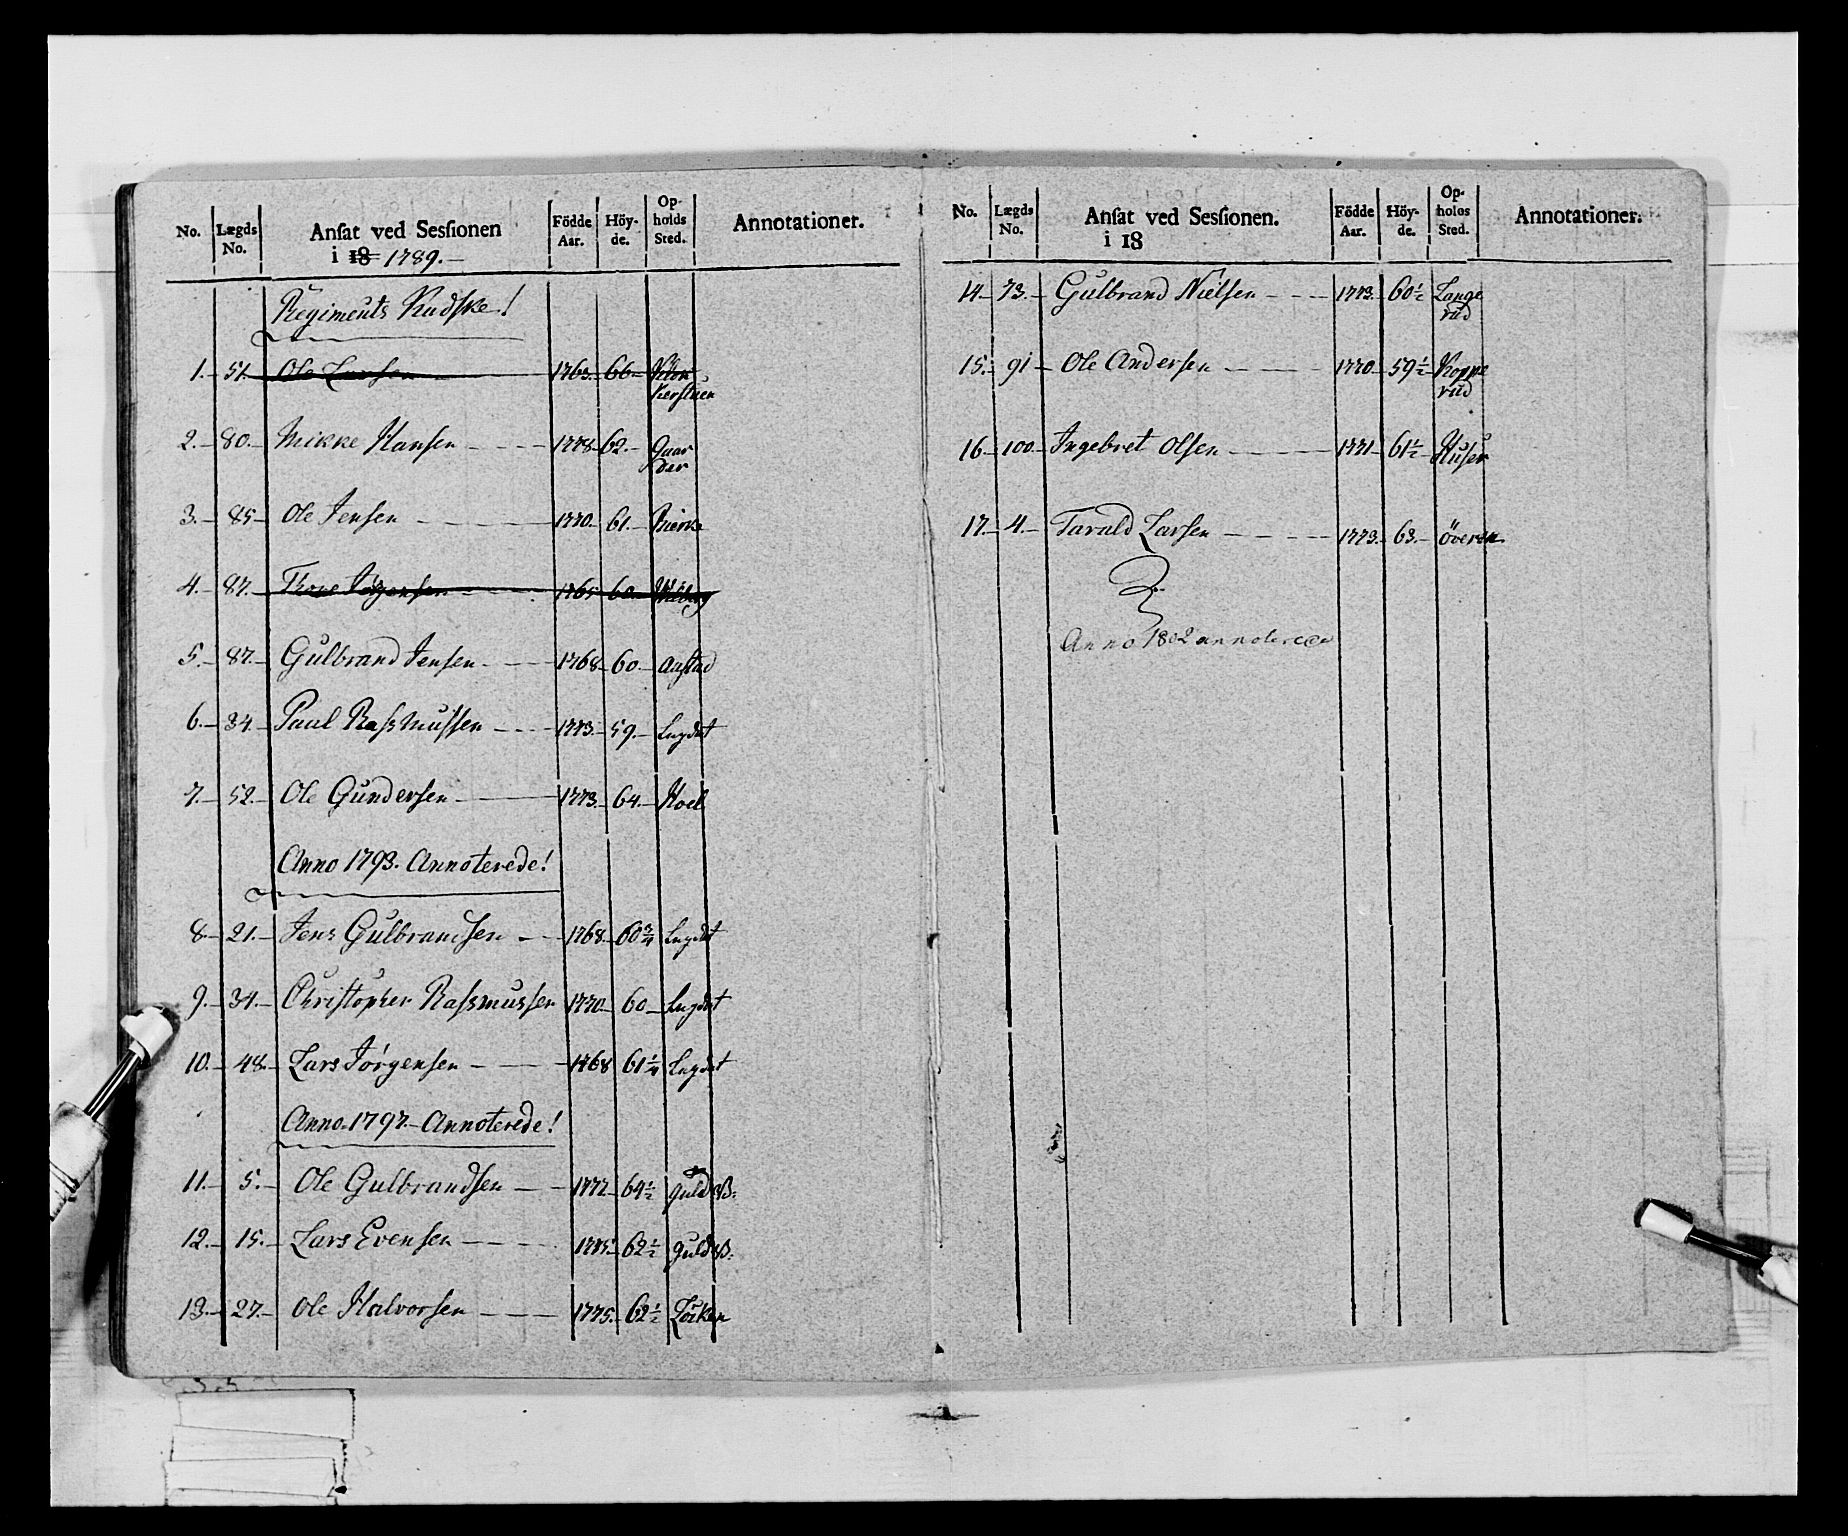 No. Lægds No. Ansat ved Sessionen i 18 1789.— Födde Aar. Höy-de. Op-holds Sted. Annotationer.
Regiments Kudske!
1.— 51.— Ole Larsen 1763.— 66—
2.— 80.— Mikke Hansen — — — 1778 62.— Gaarder
3.— 85— Ole Jensen — — — 1770.— 61.— Bierke
4.— 87.— Jörgensen — — 1765 60—
5.— 87.— Gulbrand Jensen — — — 1768— 60— Aastad
6.— 34.— Paul Rassmussen — — — 1773.— 59.— Lugdat
7.— 52.— Ole Gundersen — — 1773.— 64.— Hoel
Anno 1793. Annoterede!
8.— 21.— Jens Gulbrandsen — — 1768.— 60 3/4 Lugdat
9.— 34.— Christopher Rassmussen 1770.— 60— Lugdat
10.— 48.— Lars Jörgensen — — — 1768 61 1/4 Lugdat
Anno 1797.— Annoterede!
11.— 5.— Ole Gulbrandsen — — 1772— 64 1/2 Guld B:
12.— 15.— Lars Evensen — — — 1775 62 1/2 Guld B:
13.— 27.— Ole Halvorsen — — — 1775. 62 1/2 Löken
No. Lægds No. Ansat ved Sessionen. i 18 Födde Aar. Höy-de. Op-holds Sted. Annotationer.
14.— 73.— Gulbrand Nielsen — — — 1773. 60 1/2 Langerud
15.— 91— Ole Andersen — — — 1770— 59 1/2 Kopperud
16.— 100.— Ingebret Olsen — — — 1771— 61 1/2 Huser
17.— 4.— Tarald Larsen — — — — 1773.— 63.— Överen
Anno 1802 annoterede